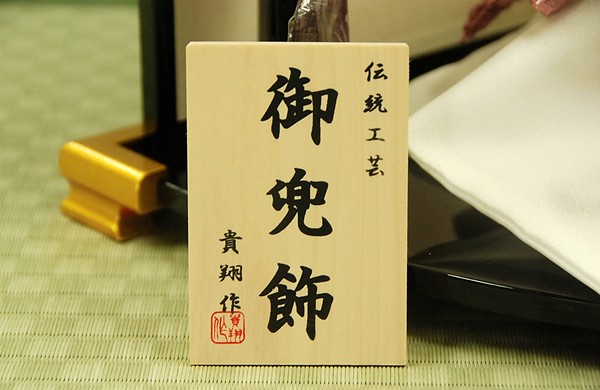 伝統工芸
御兜飾
貴翔作